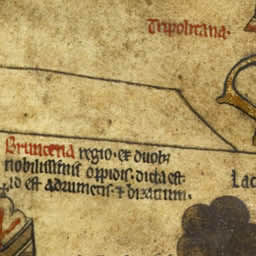 Tripolitana·
Bruncena regio· ex duobꝫ
nobilissimis oppidis· dicta est·
id est adrumetis· ⁊ bizacium·
Lac